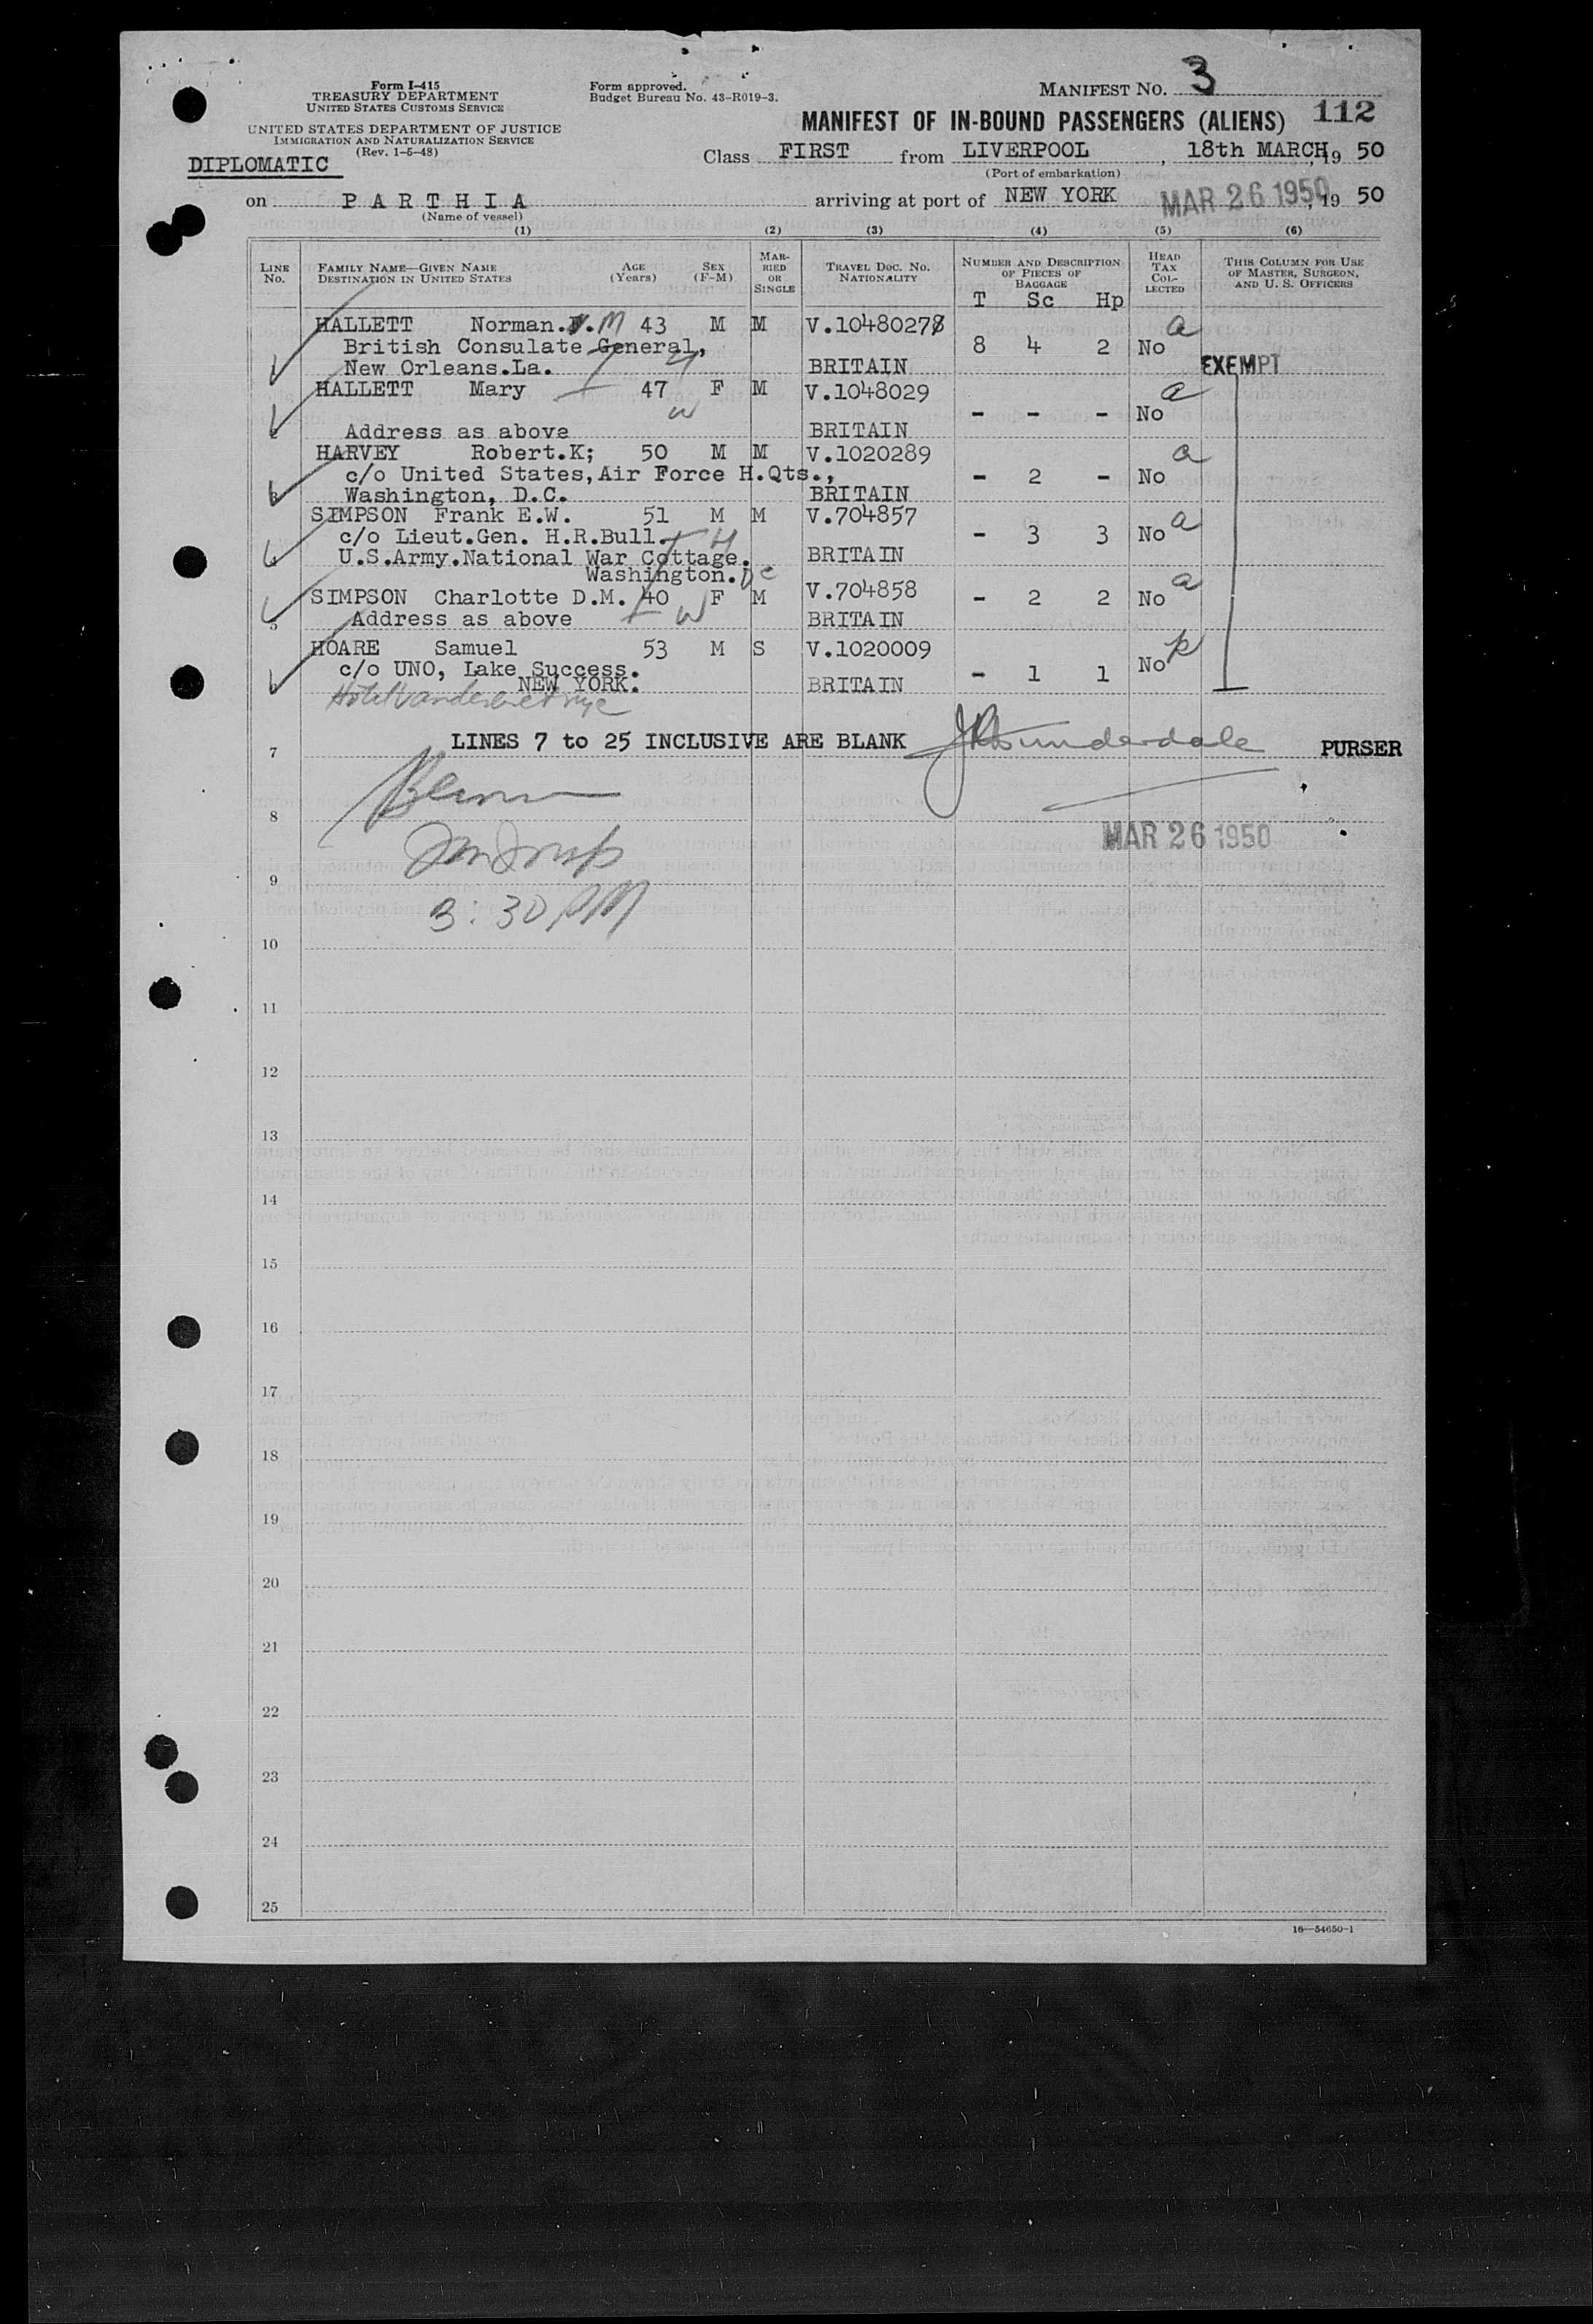 Form I-415
TREASURY DEPARTMENT
UNITED STATES CUSTOMS SERVICE
UNITED STATES DEPARTMENT OF JUSTICE
IMMIGRATION AND NATURALIZATION SERVICE
(Rev. 1-5-48)
Form approved.
Budget Bureau No. 43-R019-3.
MANIFEST NO. 3
MANIFEST OF IN-BOUND PASSENGERS (ALIENS) 112
DIPLOMATIC
Class FIRST from LIVERPOOL, 18th MARCH, 19 50
(Port of embarkation)
on PARTHIA arriving at port of NEW YORK MAR 26 1950, 19 50
(Name of vessel)
(1) (2) (3) (4) (5) (6)
LINE NO. FAMILY NAME—GIVEN NAME DESTINATION IN UNITED STATES AGE (Years) SEX (F-M) MARRIED OR SINGLE TRAVEL DOC. NO. NATIONALITY NUMBER AND DESCRIPTION OF PIECES OF BAGGAGE HEAD TAX COLLECTED THIS COLUMN FOR USE OF MASTER, SURGEON, AND U. S. OFFICERS
T Sc Hp
HALLETT Norman. M 43 M M V.1048027 8 4 2 No a
British Consulate General,
New Orleans.La. BRITAIN EXEMPT
HALLETT Mary 47 F M V.1048029 - - - No a
W
Address as above BRITAIN
HARVEY Robert.K; 50 M M V.1020289 - 2 - No a
c/o United States, Air Force H.Qts.,
Washington, D.C. BRITAIN
SIMPSON Frank E.W. 51 M M V.704857 - 3 3 No a
c/o Lieut.Gen. H.R.Bull. H
U.S.Army.National War Cottage. BRITAIN
Washington. DC
SIMPSON Charlotte D.M. 40 F M V.704858 - 2 2 No a
5 Address as above W BRITAIN
HOARE Samuel 53 M S V.1020009 - 1 1 No p
c/o UNO, Lake Success.
NEW YORK. BRITAIN
Hotel Vanderbilt nyc
7 LINES 7 to 25 INCLUSIVE ARE BLANK PURSER
8
MAR 26 1950
9
3:30 PM
10
11
12
13
14
15
16
17
18
19
20
21
22
23
24
25
16—54650-1